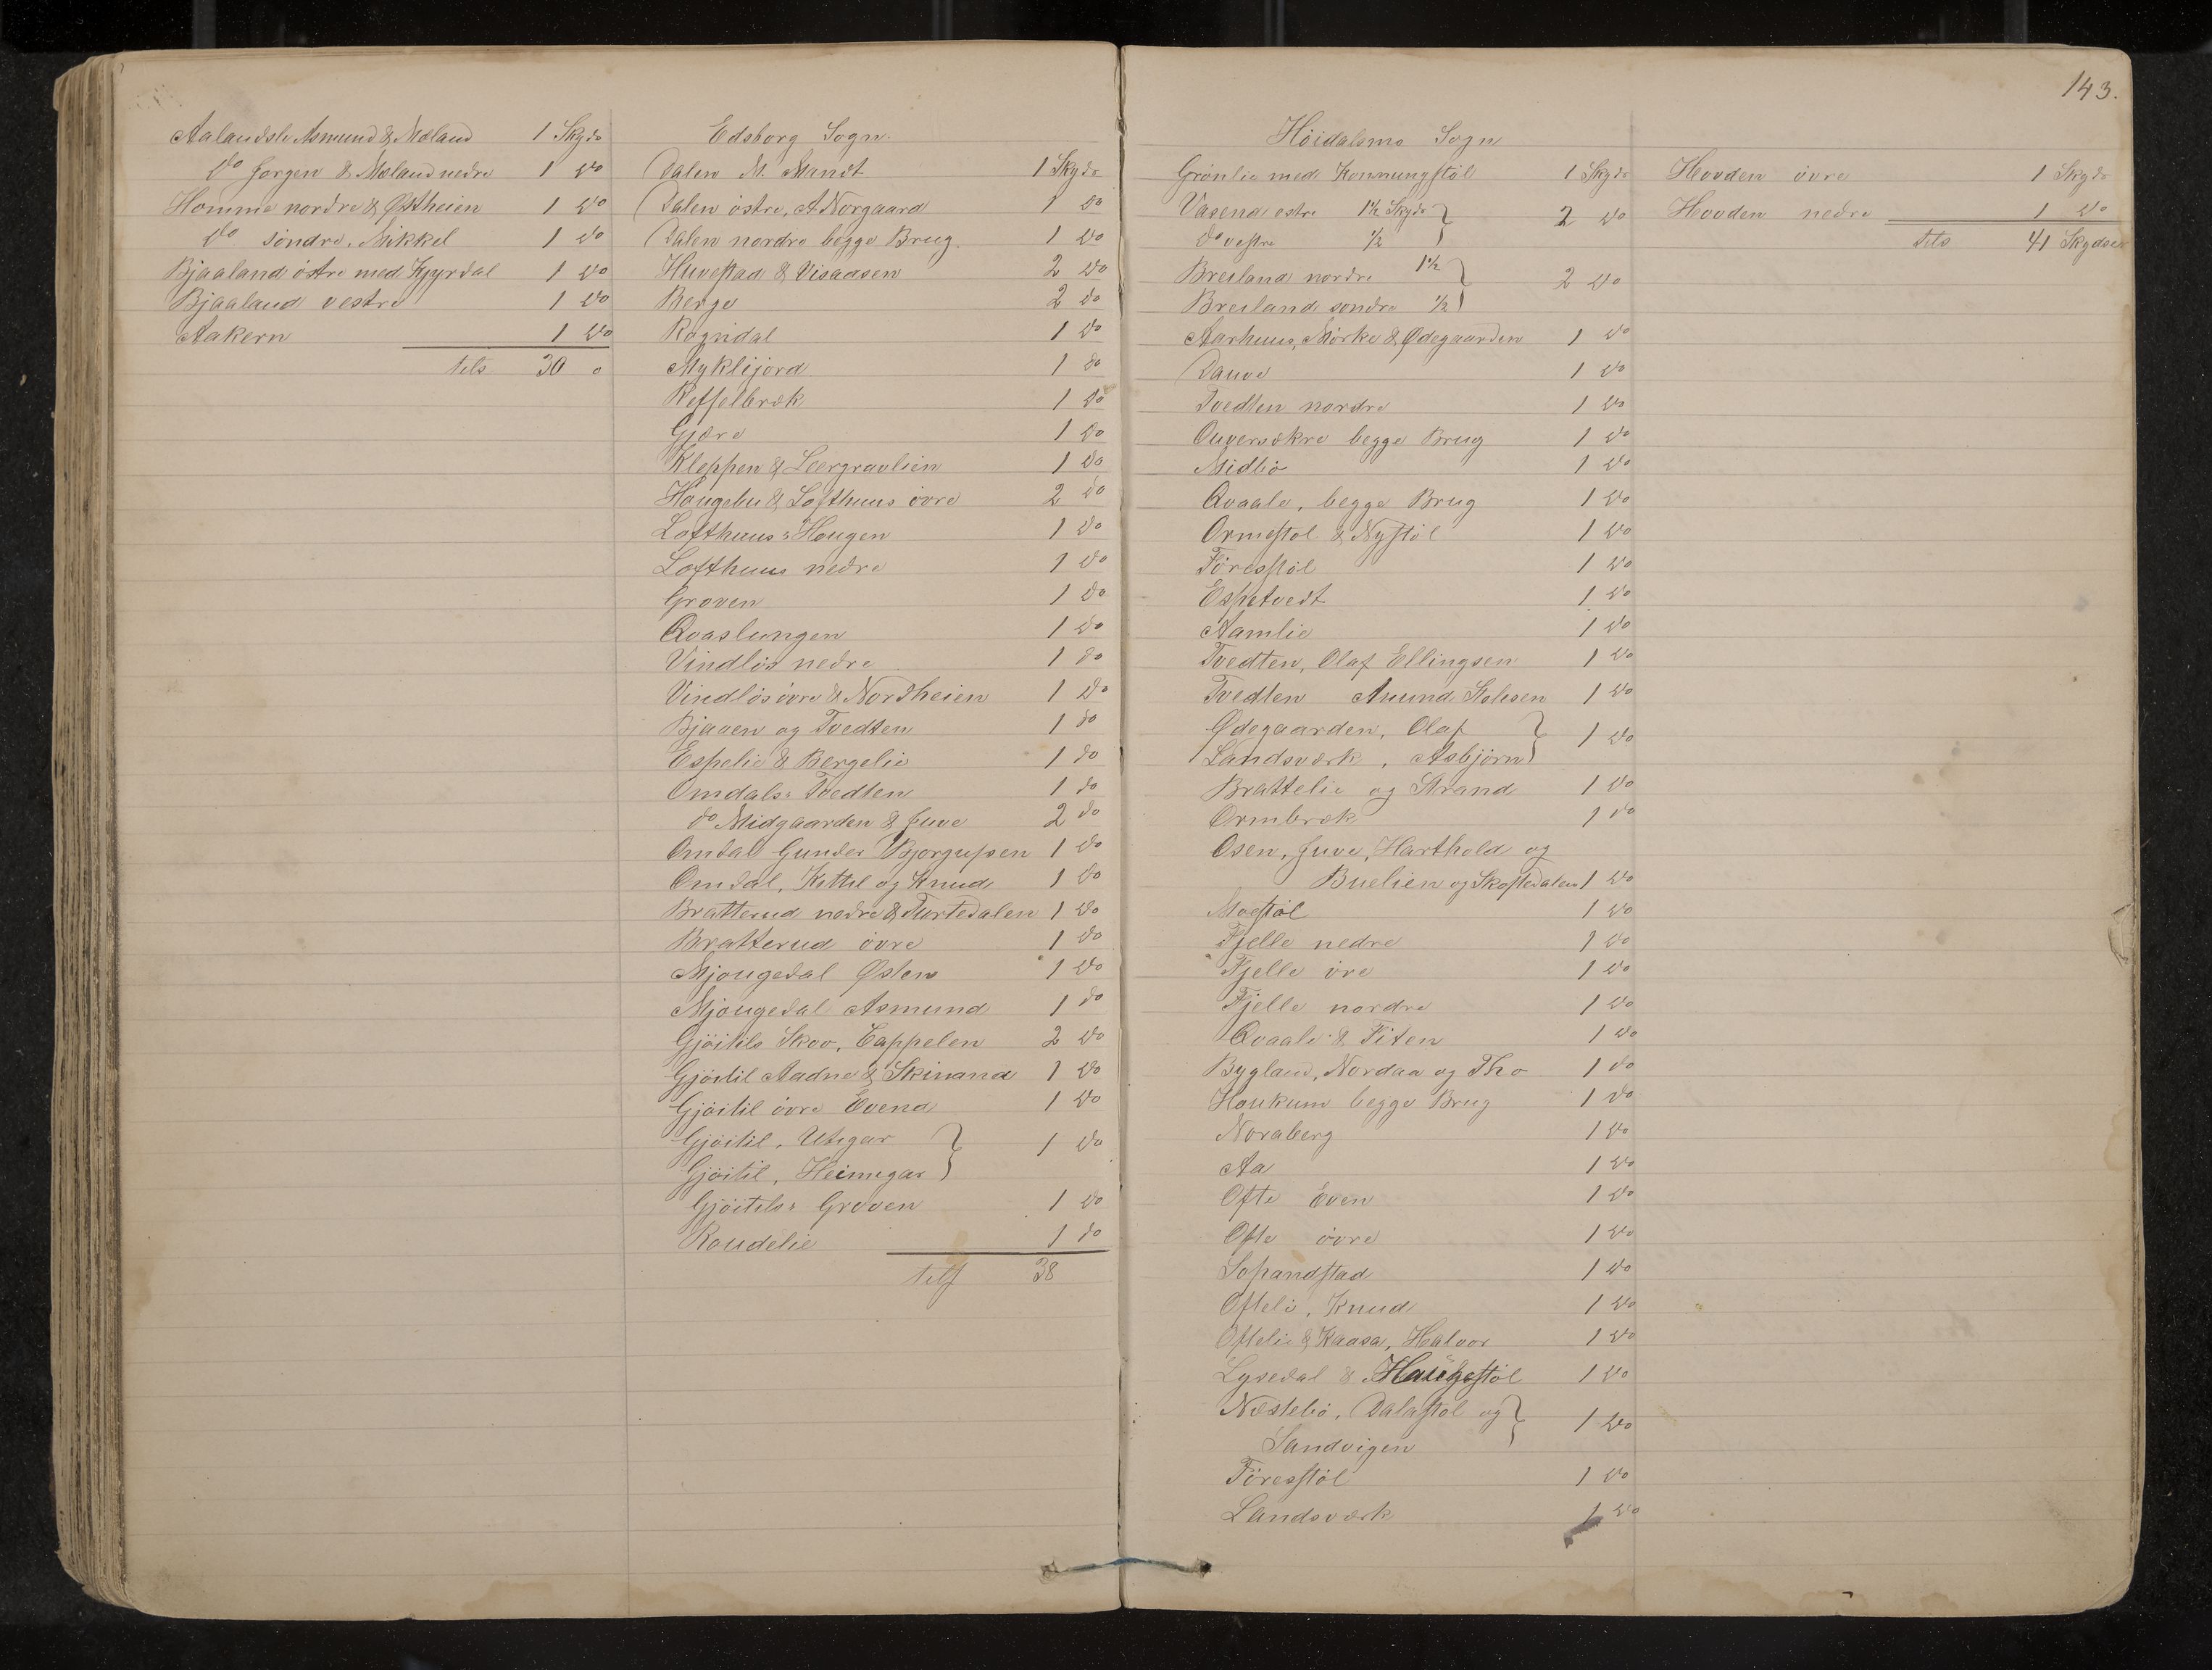 143.
Aalandsli Asmund & Mæland 1 Skyds
do Jørgen & Mæland nedre 1 do
Homme nordre & Østheien 1 do
do söndre, Mikkel 1 do
Bjaaland östre med Kyrdal 1 do
Bjaaland vestre 1 do
Aakern 1 do
tils 30
Edsborg Sogn.
Dalen M. Mandt 1 Skyds
Dalen östre, A Norgaard 1 do
Dalen nordre begge Brug. 1 do
Huvestad & Visaasen 2 do
Berge 2 do
Rogndal 1 do
Myklijord 1 do
Resselbræk 1 do
Gjære 1 do
Kleppen & Leergravlien 1 do
Hougebu & Lofthuus övre 2 do
Lofthuus: Hougen 1 do
Lofthuus nedre 1 do
Groven 1 do
Qvaslungen 1 do
Vindlös nedre 1 do
Vindlös övre & Nordheien 1 do
Bjaaen og Tvedten 1 do
Espelie & Bergelie 1 do
Omdals: Tvedten 1 do
do Midgaarden & Juve 2 do
Omdal Gunder Bjorgufsen 1 do
Omdal, Kittil og Knud 1 do
Bratterud nedre & Turtedalen 1 do
Bratterud övre 1 do
Mjougedal Østen 1 do
Mjougedal Asmund 1 do
Gjöitils Skov, Cappelen 2 do
Gjöitil Aadne & Skinand 1 do
Gjöitil övre Evend 1 do
Gjöitil, Utigar } 1 do
Gjöitil, Heimigar }
Gjöitils: Groven 1 do
Roudelie 1 do
tils 38
Höidalsmo Sogn
Grönlie med Konnungstöl 1 Skyds
Vasend östre 1½ Skyds } 2 do
do vestre ½ }
Breiland nordre 1½ } 2 do
Breiland söndre ½ }
Aarhuus, Mörke & Ødegaarden 1 do
Dauve 1 do
Tvedten nordre 1 do
Ouversækre begge Brug 1 do
Midbö 1 do
Qvaale, begge Brug 1 do
Ormestöl & Nystöl 1 do
Föresstöl 1 do
Espetvedt 1 do
Aamlie 1 do
Tvedten, Olaf Ellingsen 1 do
Tvedten Amund 1 do
Ødegaarden, Olaf } 1 do
Landsværk, Asbjörn }
Brattelie og Strand 1 do
Ormbræk 1 do
Osen, Juve, Harthold og
Buelien og Skoftedalen 1 do
Moestöl 1 do
Fjelle nedre 1 do
Fjelle övre 1 do
Fjelle nordre 1 do
Qvaale & Fiten 1 do
Bygland, Nordaa og Tho 1 do
Houkum begge Brug 1 do
Noraberg 1 do
Aa 1 do
Ofte Even 1 do
Ofte övre 1 do
Lopandstad 1 do
Oftelie, Knud 1 do
Oftelie & Kaasa, Halvor 1 do
Lysedal & Haugestöl 1 do
Næstebö, Dalastöl og } 1 do
Sandvigen }
Föresstöl 1 do
Landsværk 1 do
Hovden övre 1 Skyds
Hovden nedre 1 do
tils 41 Skydse